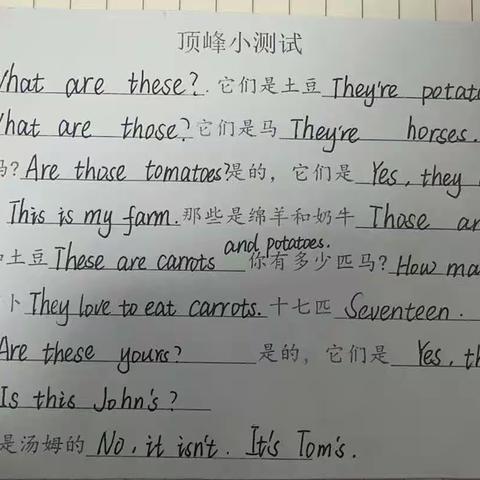 顶峰小测试
What are these? 它们是土豆 They're potat
What are those? 它们是马 They're horses.
吗? Are those tomatoes? 是的，它们是 Yes, they
This is my farm. 那些是绵羊和奶牛 Those ar
土豆 These are carrots and potatoes. 你有多少匹马? How ma
卜 They love to eat carrots. 十七匹 Seventeen.
Are these yours? 是的，它们是 Yes, th
Is this John's?
是汤姆的 No, it isn't. It's Tom's.